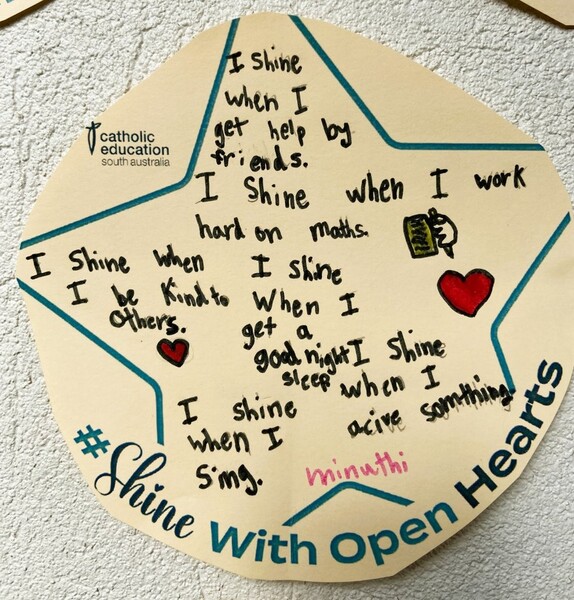 I Shine
when I
get help by
friends.
catholic
education
south australia
I Shine when I work
hard on maths.
I Shine when
I be Kind to
others.
I shine
When I
get a
good night
sleep
I Shine
when I
acive somthing.
I shine
when I
Sing.
minuthi
#Shine With Open Hearts